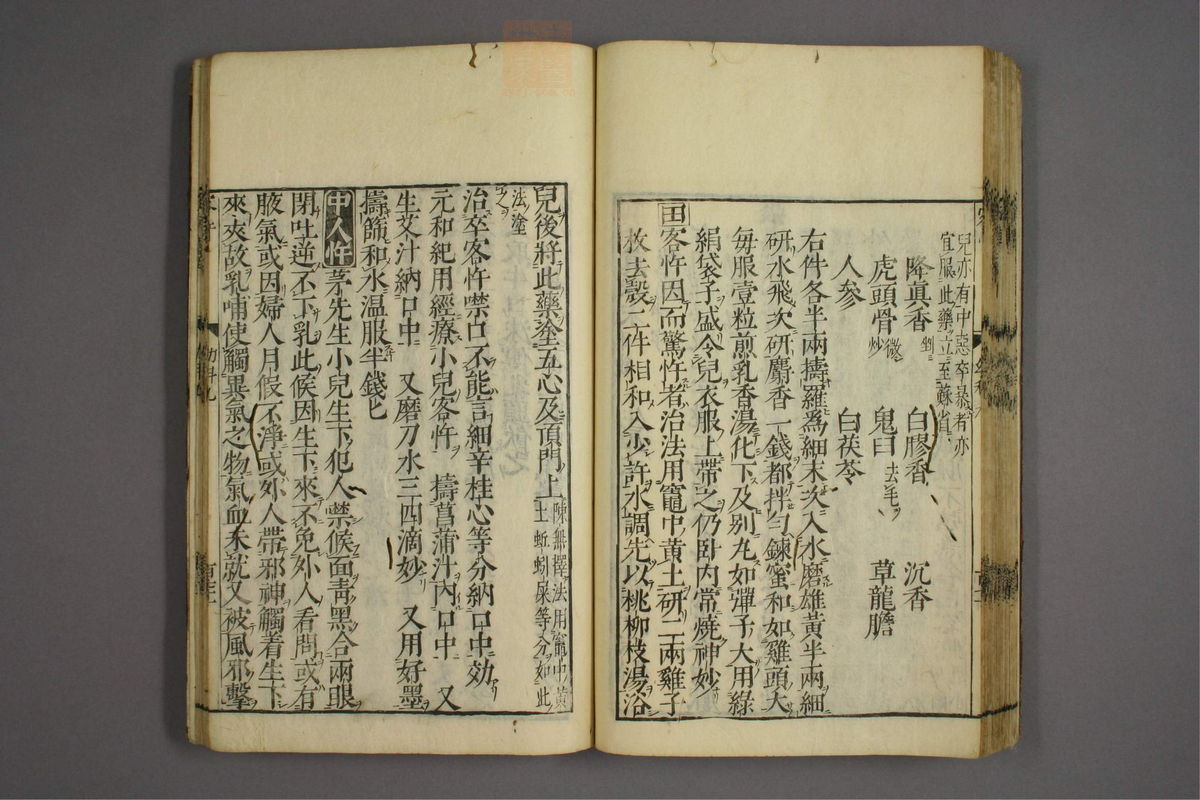 兒亦有中惡卒暴者亦
宜服此藥立至蘇省
降真香剉 白膠香 沉香
虎頭骨微炒 鬼臼去毛 草龍膽
人參 白茯苓
右件各半兩擣羅為細末次入水磨雄黃半兩細
研水飛次研麝香一錢都拌勻鍊蜜和如雞頭大
每服壹粒煎乳香湯化下及別丸如彈子大用綠
絹袋子盛令兒衣服上帶之仍臥內常燒神妙
田客忤因而驚忤者治法用竈中黃土研二兩雞子
枚去殼二件相和入少許水調先以桃柳枝湯浴
兒後將此藥塗五心及頂門上陳無擇法用竈中黃
土蚯蚓屎等分如此
法塗
之
治卒客忤噤口不能言細辛桂心等分納口中效
元和紀用經療小兒客忤 擣菖蒲汁內口中 又
生艾汁納口中 又磨刀水三四滴妙 又用好墨
擣篩和水溫服半錢匕
中人忤 茅先生小兒生下犯人噤候面青黑合兩眼
閉吐逆不下乳此候因生下來不免外人看問或有
腋氣或因婦人月假不淨或外人帶邪神觸着生下
來夾故乳哺使觸異氣之物氣血未就又被風邪擊